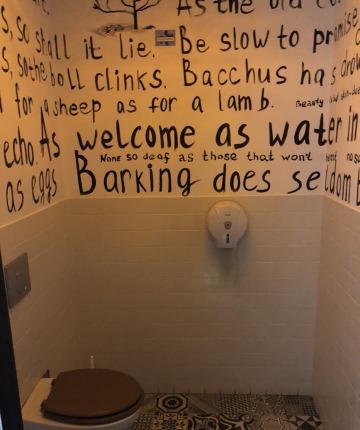 As the old co
s, so shall it lie. Be slow to promise
s, so the bell clinks. Bacchus has drow
for a sheep as for a lamb. Beauty
echo. As welcome as water in
None so deaf as those that won't
as eggs Barking does seldom b